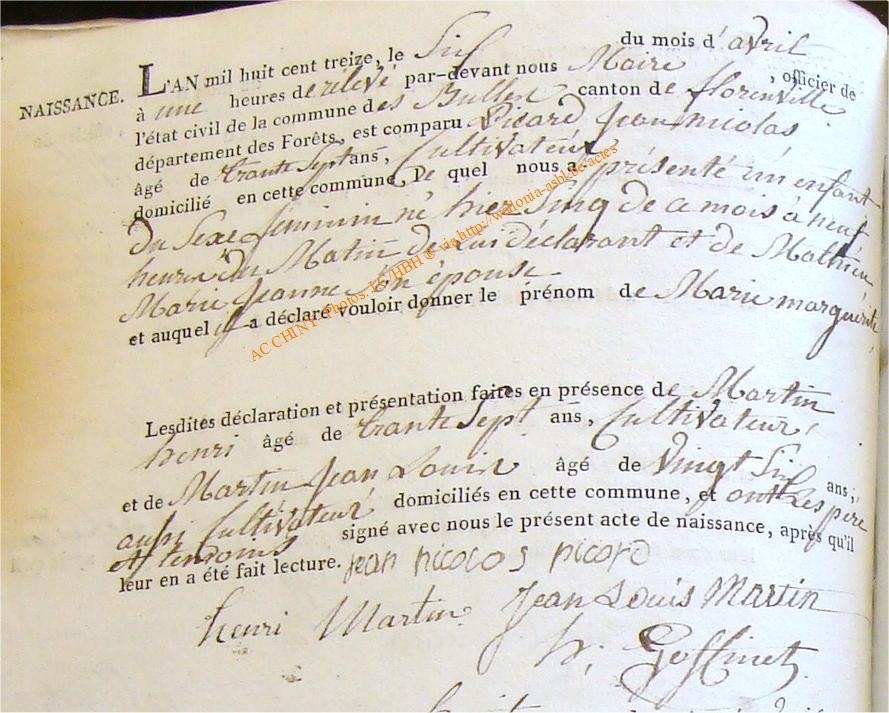 NAISSANCE.
L'AN mil huit cent treize, le Six du mois d'avril
à une heures de rélevé par-devant nous Maire, officier de
l'état civil de la commune des Bulles canton de florenville
département des Forêts, est comparu Picard Jean nicolas
âgé de trante Sept ans, Cultivateur
domicilié en cette commune, De quel nous a présenté un enfant
du Sexe feminin né hier Sinq de ce mois à neuf
heures du Matin de Lui déclarant et de Mathieu
Marie Jeanne Son épouse
et auquel il a déclaré vouloir donner le prénom de Marie marguerite,
AC CHINY Photos. LC/HBH ® via http://wallonia-asbl.be/actes
Lesdites déclaration et présentation faites en présence de Martin
henri âgé de trante Sept ans, Cultivateur,
et de Martin Jean Louis âgé de vingt Six ans,
aussi Cultivateur domiciliés en cette commune, et ont Les père
et temoins signé avec nous le présent acte de naissance, après qu'il
leur en a été fait lecture. jean nicolos picard
henri Martin Jean Louis Martin
h; Goffinet